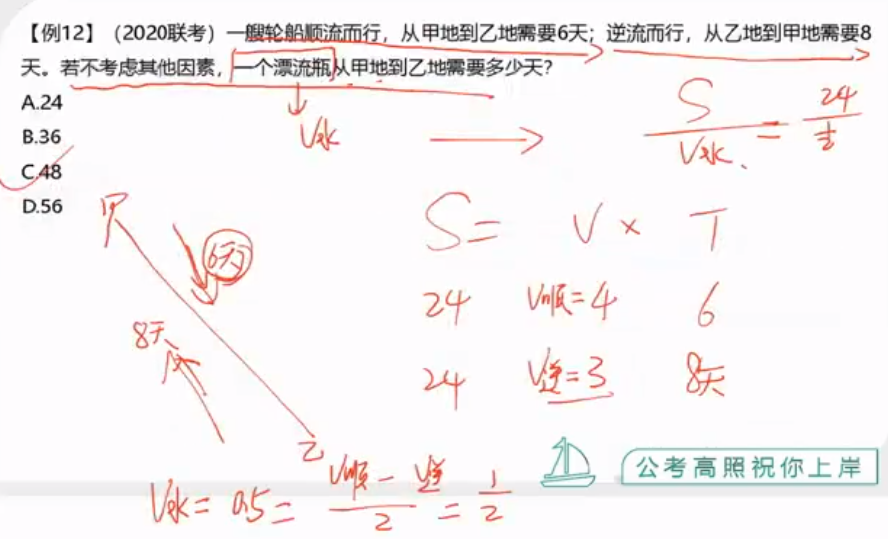 【例12】（2020联考）一艘轮船顺流而行，从甲地到乙地需要6天；逆流而行，从乙地到甲地需要8
天。若不考虑其他因素，一个漂流瓶从甲地到乙地需要多少天？
A.24
B.36
C.48
D.56
V水
S/V水 = 24/½
甲
6天
8天
乙
S= V × T
24 V顺=4 6
24 V逆=3 8天
V水= 0.5= (V顺-V逆)/2 = 1/2
公考高照祝你上岸